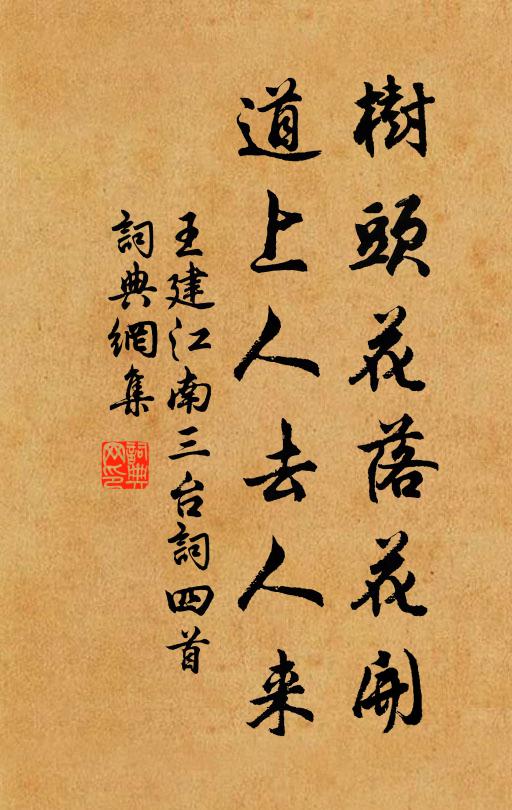 樹頭花落花開
道上人去人来
王建江南三台詞四首
詞典網集
詞典
网印